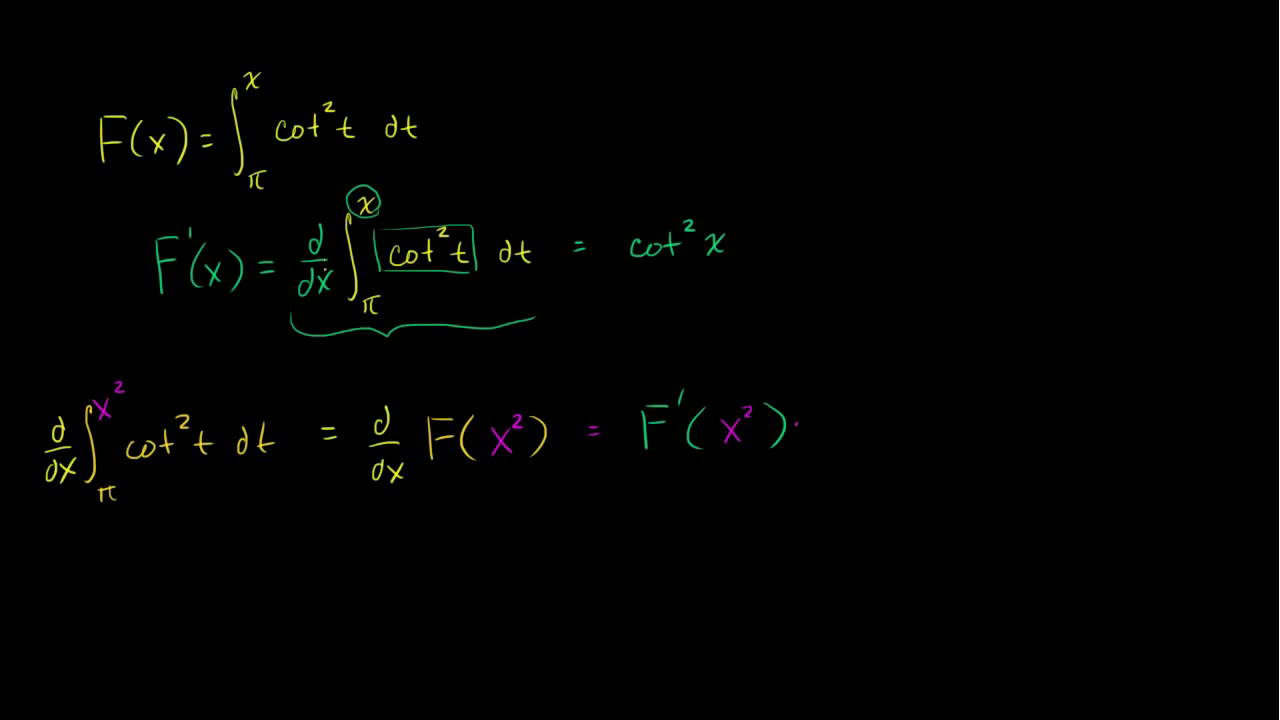 F(x) = ∫_π^x cot² t dt
F'(x) = d/dx ∫_π^x cot² t dt = cot² x
d/dx ∫_π^x² cot² t dt = d/dx F(x²) = F'(x²) ·